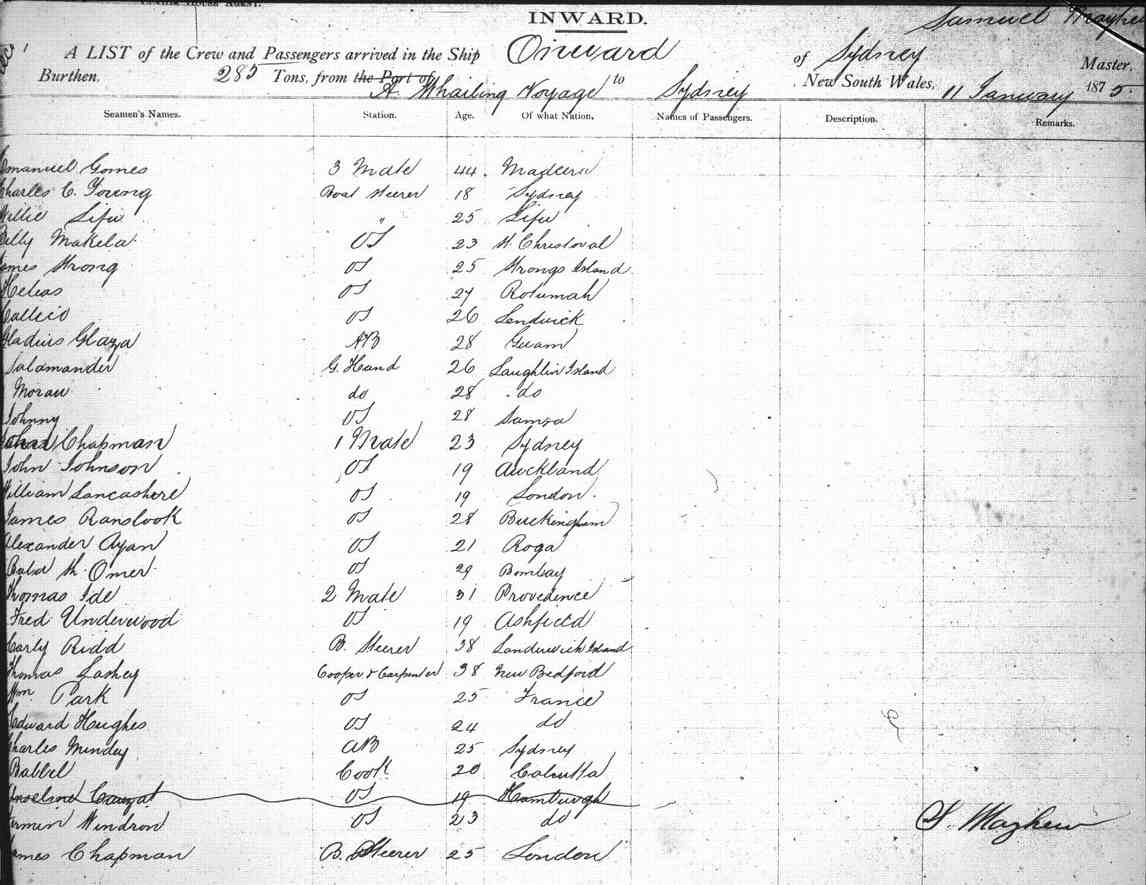 INWARD.
Samuel
A LIST of the Crew and Passengers arrived in the Ship Onward of Sydney Master,
Burthen, 285 Tons, from the Port of A Whaling Voyage to Sydney New South Wales, 11 January 1875.
Seamen's Names. Station. Age. Of what Nation. Names of Passengers. Description. Remarks.
manuel Gomes 3 Mate 44. Madeira
Charles C. Young Boat Steerer 18 Sydney
Willie Lifu " 25 Lifu
Billy Makela OS 23 St. Christoval
ames Strong OS 25 Strongs Island
Helias OS 27 Rotumah
Callico OS 26 Sandwick
Gladius Glaza AB 28 Guam
Salamander G. Hand 26 Laughlin Island
Morau do 28 do
Johnny OS 28 Samoa
Chapman 1 Mate 23 Sydney
John Johnson OS 19 Auckland
William Lancashere OS 19 London.
James Ranslook OS 28 Buckingham
Alexander Ayan OS 21 Roga
Omer OS 29 Bombay
Thomas Ide 2 Mate 31 Providence
Fred Underwood OS 19 Ashfield
Carly Ridd B. Steerer 38 Sandwich Island
Thomas Laskey Cooper & Carpenter 38 New Bedford
Wm Park OS 25 France
Edward Hughes OS 24 do
Charles Mindey AB 25 Sydney
Babbel Cook 20 Calcutta
OS 19 Hamburgh
ermin Windron OS 23 do S. Mayhew
ames Chapman B. Steerer 25 London